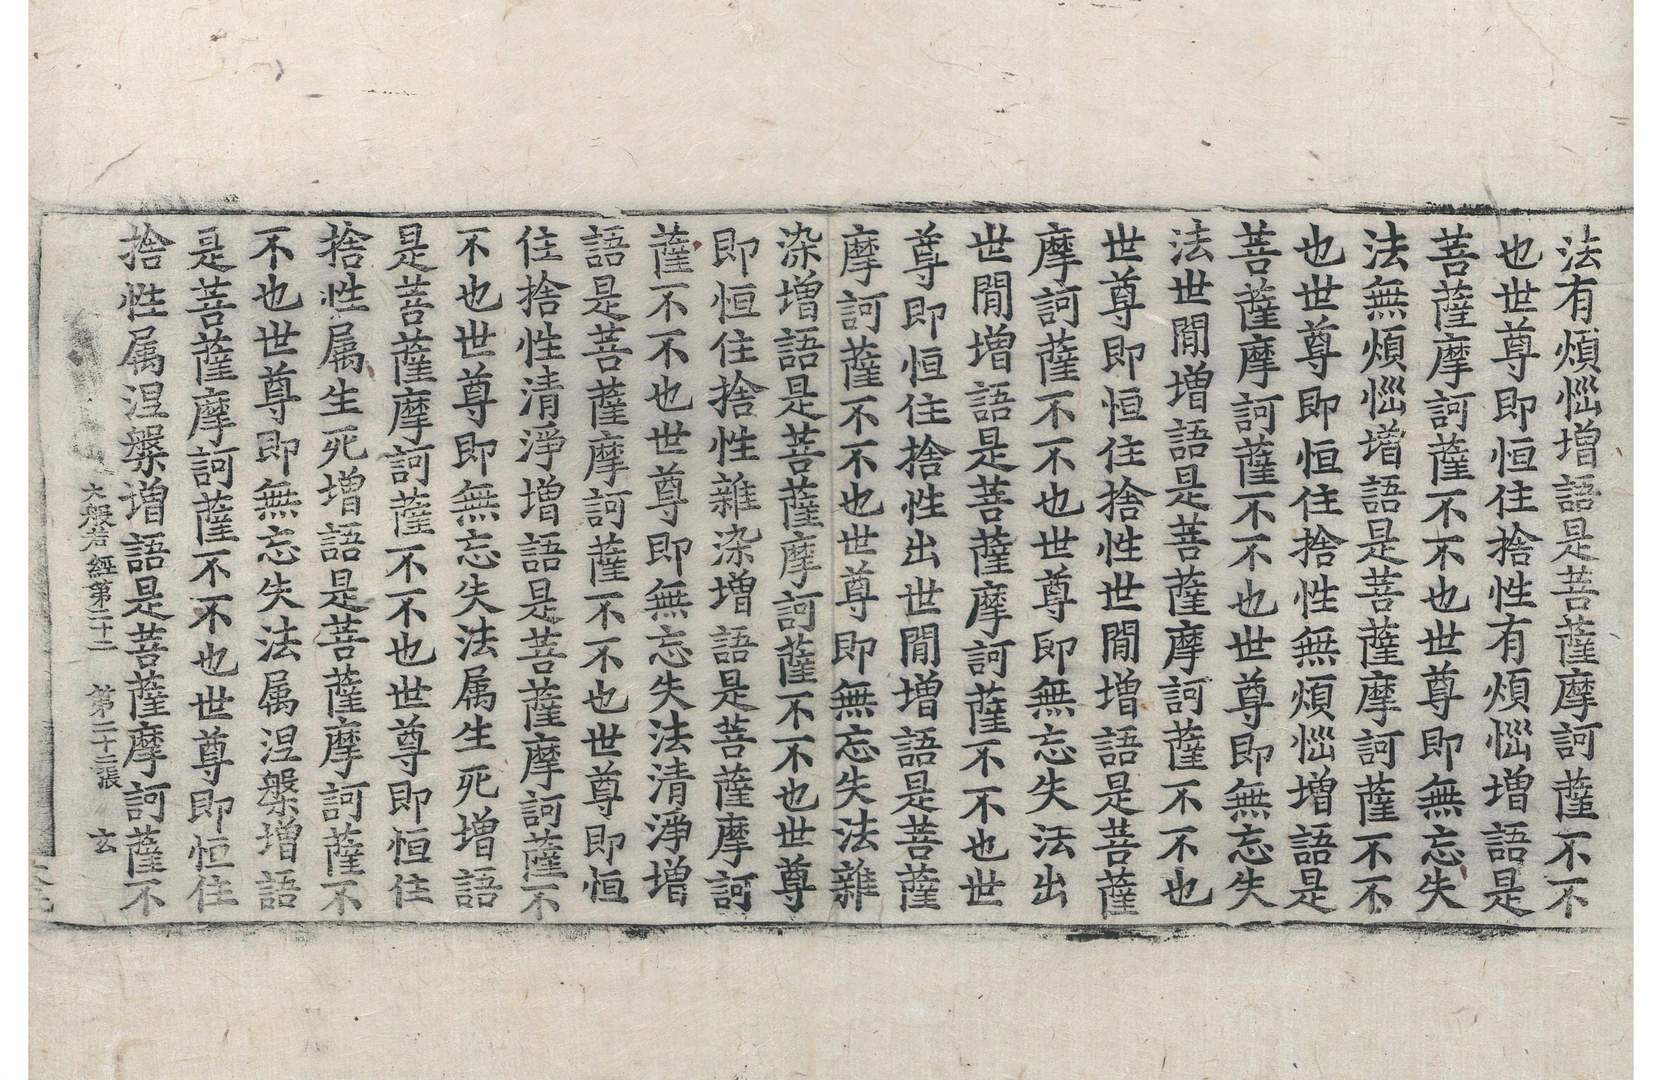 法有煩惱增語是菩薩摩訶薩不不
也世尊即恒住捨性有煩惱增語是
菩薩摩訶薩不不也世尊即無忘失
法無煩惱增語是菩薩摩訶薩不不
也世尊即恒住捨性無煩惱增語是
菩薩摩訶薩不不也世尊即無忘失
法世閒增語是菩薩摩訶薩不不也
世尊即恒住捨性世閒增語是菩薩
摩訶薩不不也世尊即無忘失法出
世閒增語是菩薩摩訶薩不不也世
尊即恒住捨性出世閒增語是菩薩
摩訶薩不不也世尊即無忘失法雜
染增語是菩薩摩訶薩不不也世尊
即恒住捨性雜染增語是菩薩摩訶
薩不不也世尊即無忘失法清淨增
語是菩薩摩訶薩不不也世尊即恒
住捨性清淨增語是菩薩摩訶薩不
不也世尊即無忘失法属生死增語
是菩薩摩訶薩不不也世尊即恒住
捨性属生死增語是菩薩摩訶薩不
不也世尊即無忘失法属涅槃增語
是菩薩摩訶薩不不也世尊即恒住
捨性属涅槃增語是菩薩摩訶薩不
大般若經第三十二 第二十二張 玄